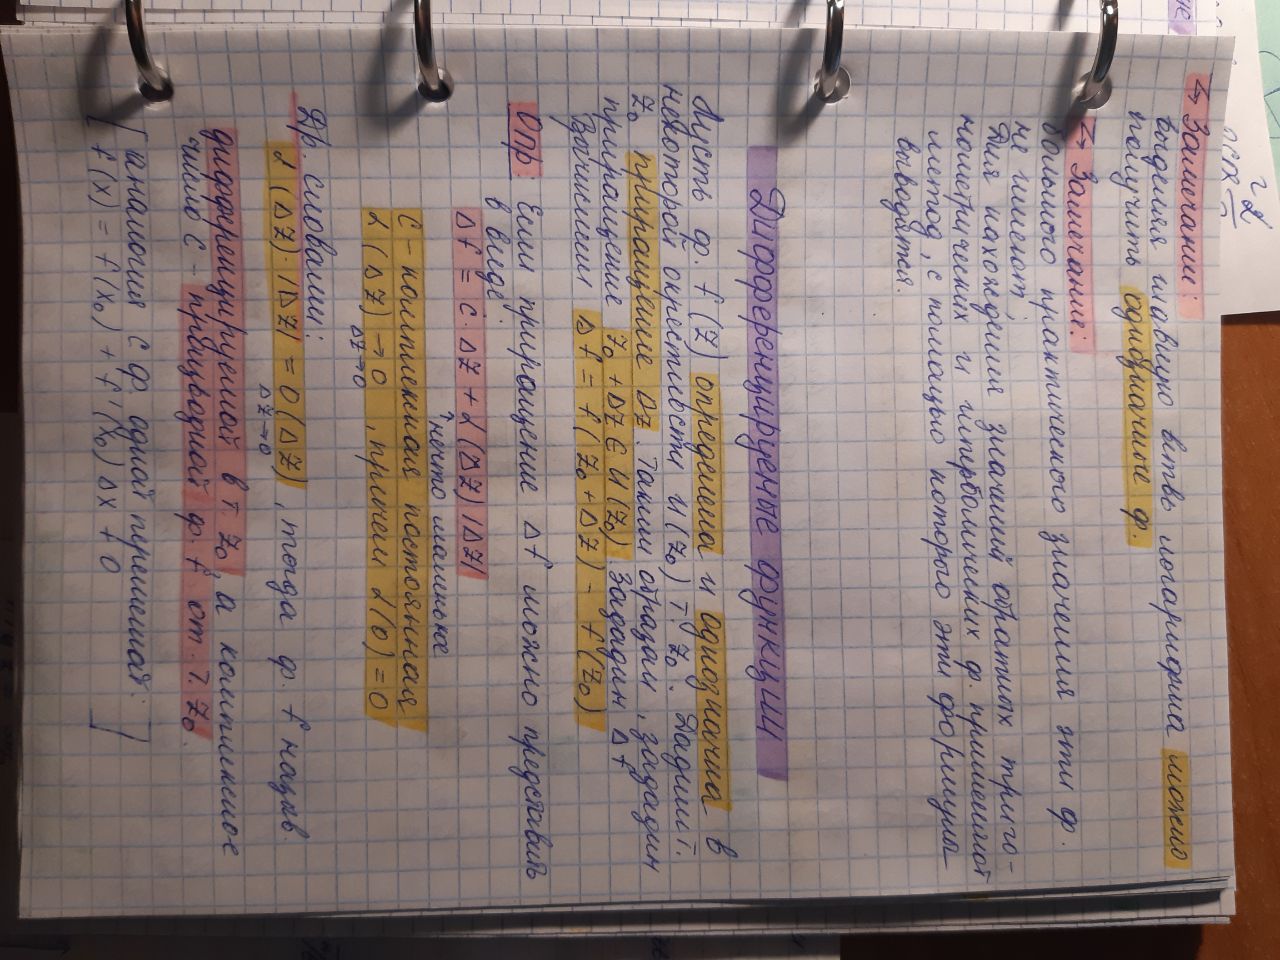 ↳ Замечание:
выделяя главную ветвь логарифма можно
получить однозначные ф.
↳ Замечание:
большого практического значения эти ф.
не имеют,
Для нахождения значений обратных триго-
нометрических и гиперболических ф. применяют
метод, с помощью которого эти формулы
выводятся.
Дифференцируемые функции
Пусть ф. f(z) определена и однозначна в
некоторой окрестности U(z₀) т. z₀. Дадим т.
z₀ приращение Δz. Таким образом, зададим
приращение z₀ + Δz ∈ U(z₀) Зададим Δf
Вычислим Δf = f(z₀ + Δz) - f(z₀)
Опр: Если приращение Δf можно представить
в виде:
Δf = c · Δz + α(Δz)|Δz|
нечто маленькое
C - комплексная постоянная
α(Δz) → 0, причем α(0) = 0
Δz→0
Др. словами:
α(Δz)·|Δz| = 0(Δz), тогда ф. f назыв.
Δz→0
дифференцируемой в т. z₀, а комплексное
число C - производной ф. f от т. z₀.
[аналогия с ф. одной переменной:
f(x) = f(x₀) + f'(x₀)Δx + 0]